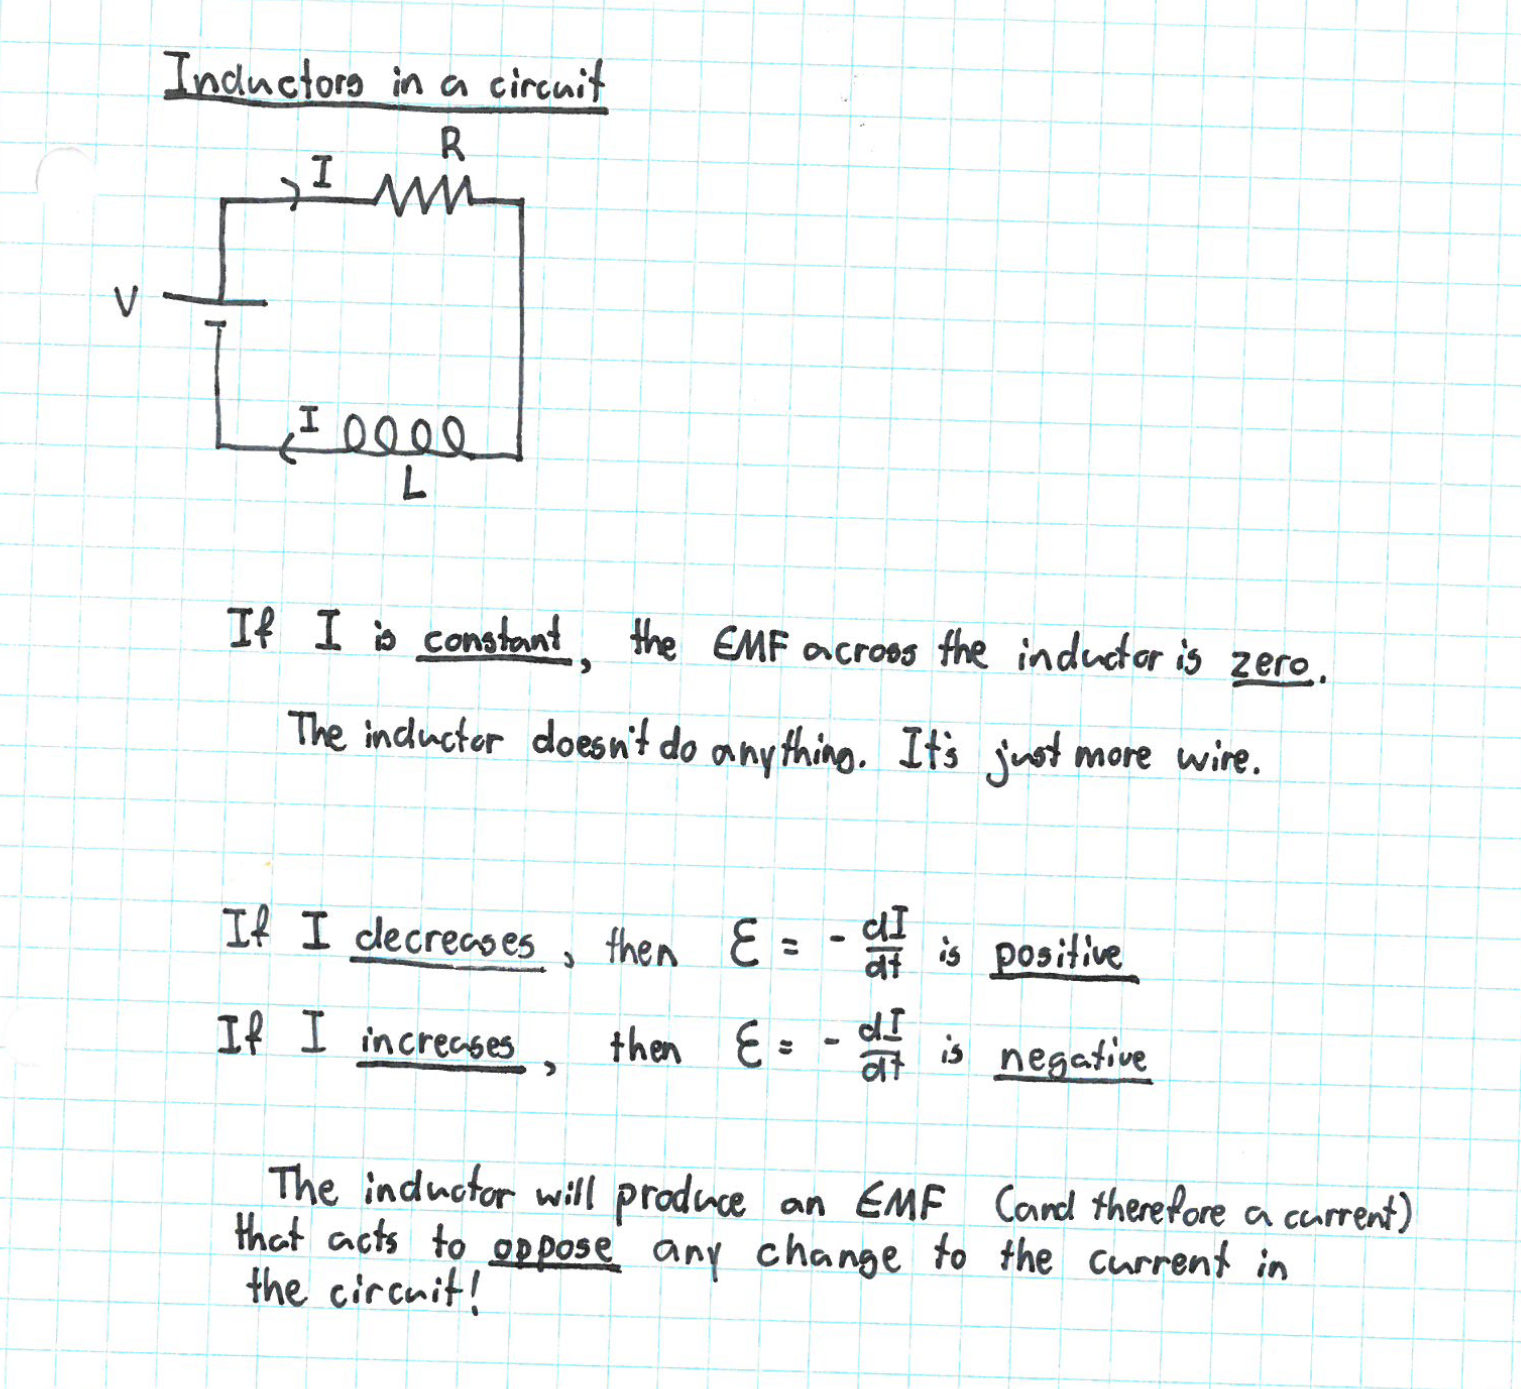 Inductors in a circuit
R
I
V
I
L
If I is constant, the EMF across the inductor is zero.
The inductor doesn't do anything. It's just more wire.
If I decreases, then ℰ = - dI/dt is positive
If I increases, then ℰ = - dI/dt is negative
The inductor will produce an EMF (and therefore a current)
that acts to oppose any change to the current in
the circuit!